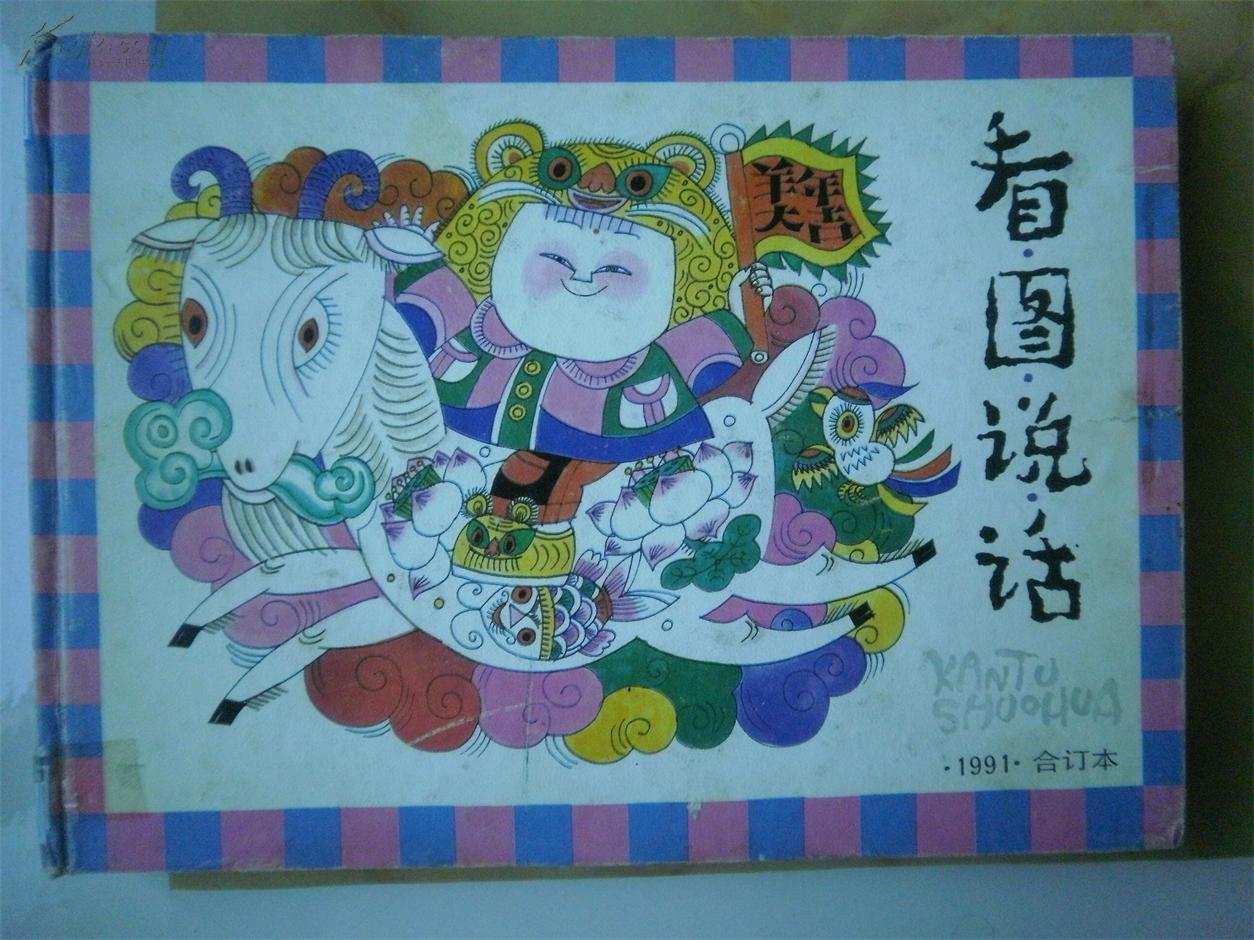 看·图·说·话
KANTU
SHUOHUA
·1991·合订本
羊年
大吉